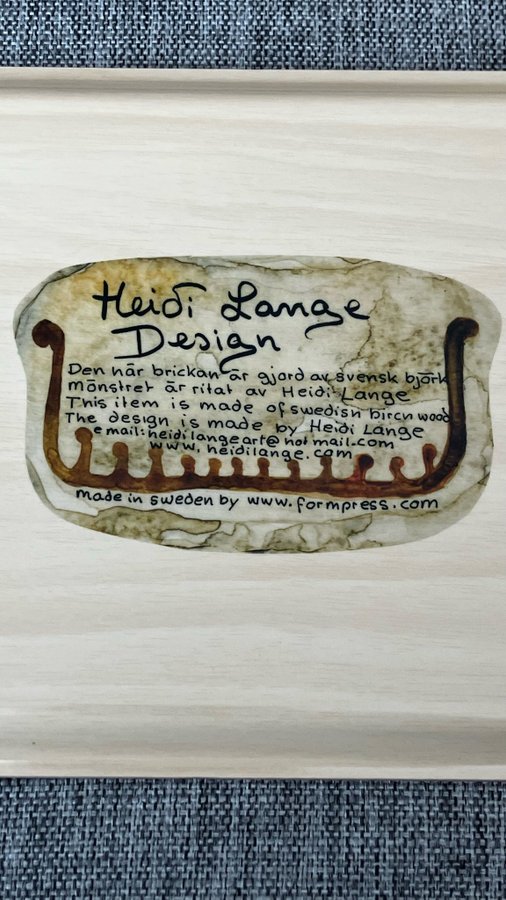 Heidi Lange
Design
Den här brickan är gjord av svensk björk
mönstret är ritat av Heidi Lange
This item is made of swedish birch wood
The design is made by Heidi Lange
e mail: heidilangeart@hotmail.com
www.heidilange.com
made in sweden by www.formpress.com